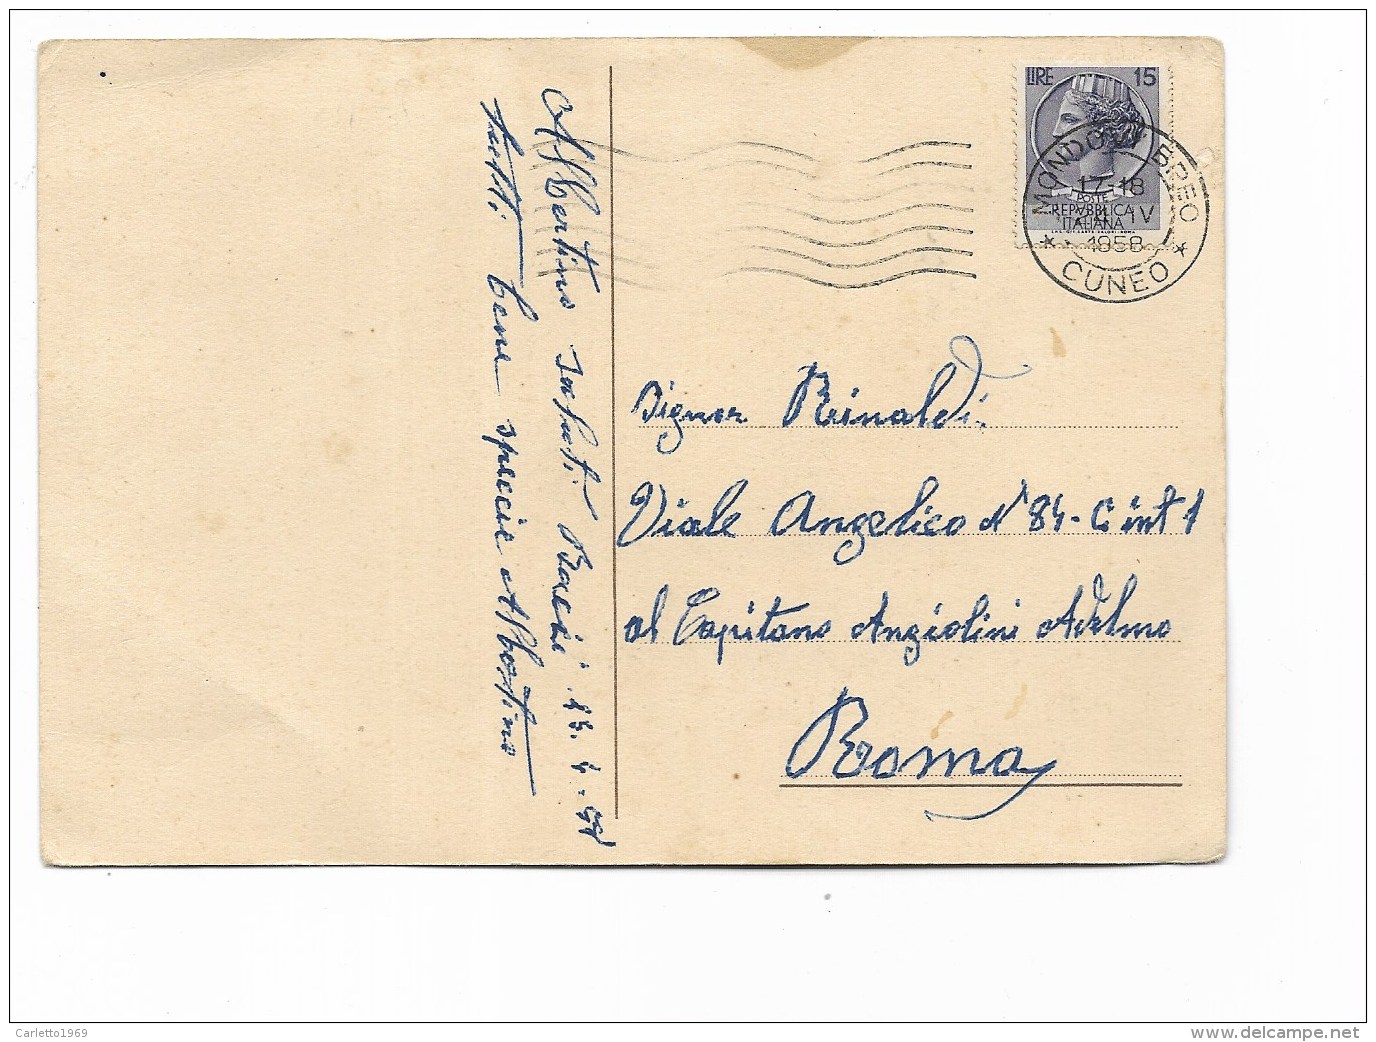 LIRE 15
POSTE
REPVBBLICA
ITALIANA
MONDOVI BREO
17-18
IV
1958
* CUNEO *
Signor Rinaldi
Viale Angelico N° 84 - C int 1
al Capitano Angiolini Adelmo
Roma
Albertino
Baci 13. 4 - 58
tutti bene specie Albertino
Carletto1969
delcampe.net